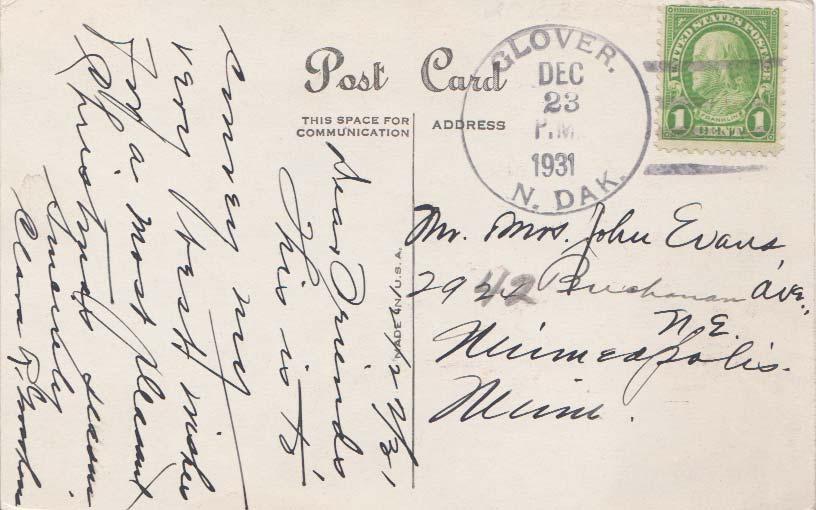 Post Card
THIS SPACE FOR
COMMUNICATION
ADDRESS
GLOVER.
DEC
23
P.M.
1931
N. DAK.
UNITED STATES POSTAGE
FRANKLIN
1 CENT 1
MADE IN U.S.A.
Mr. Mrs. John Evans,
Buchanan Ave.,
N.E.
Minneapolis.
Minn.
Dear Friends
This is to
convey my
very best wishes
For a most pleasant
Christmas season
Sincerely
Clara